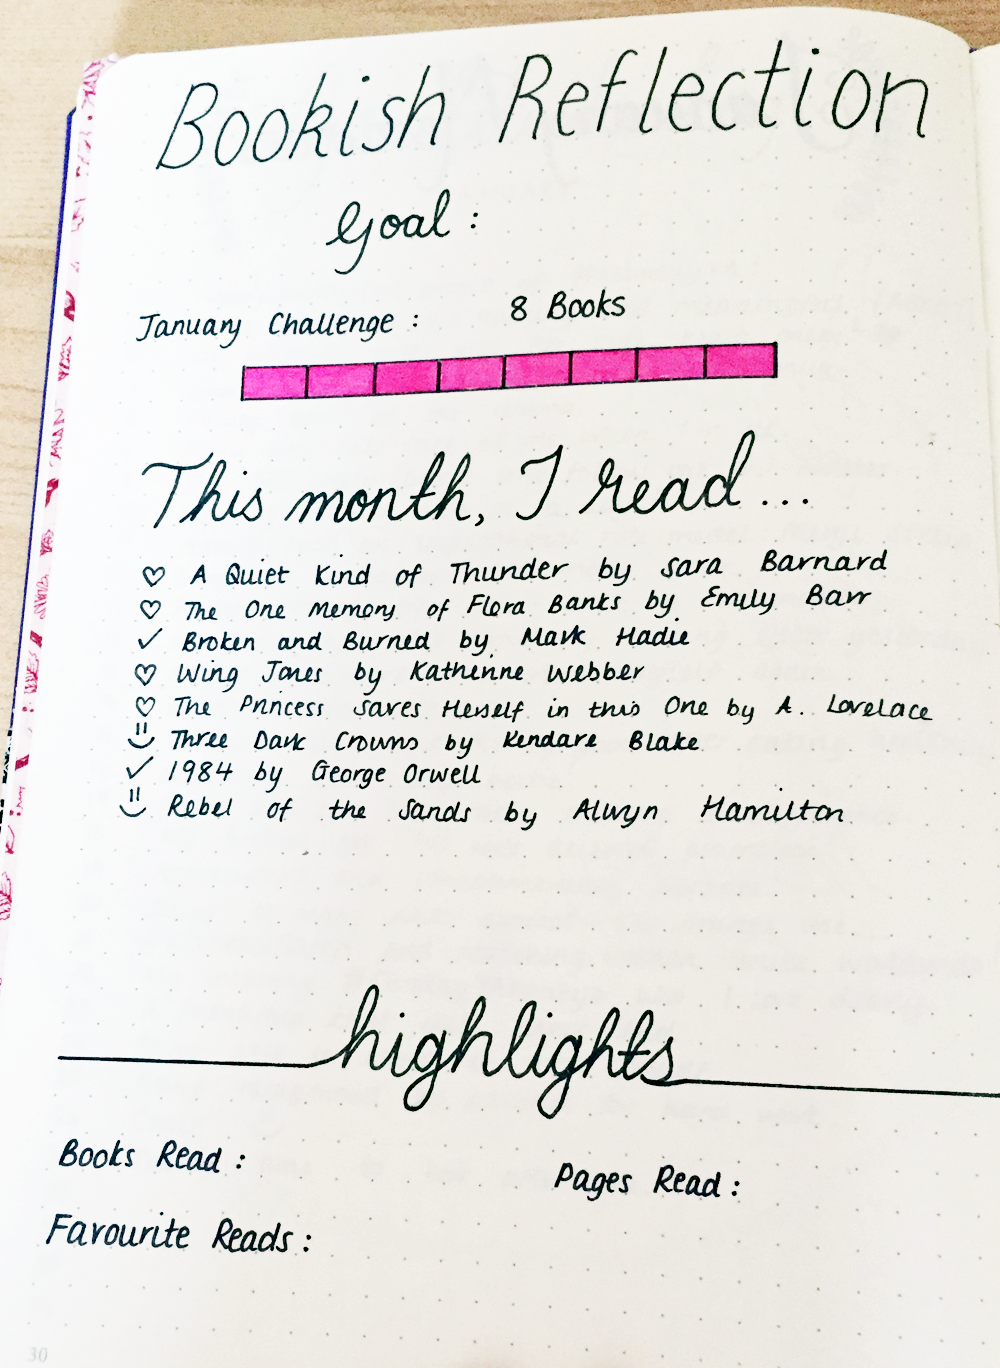 Bookish Reflection
Goal :
January Challenge : 8 Books
This month, I read...
♡ A Quiet Kind of Thunder by Sara Barnard
♡ The One Memory of Flora Banks by Emily Barr
✓ Broken and Burned by Mark Hadie
♡ Wing Jones by Katherine Webber
♡ The Princess Saves Herself in this One by A. Lovelace
Three Dark Crowns by Kendare Blake
✓ 1984 by George Orwell
Rebel of the Sands by Alwyn Hamilton
highlights
Books Read : Pages Read :
Favourite Reads :
30